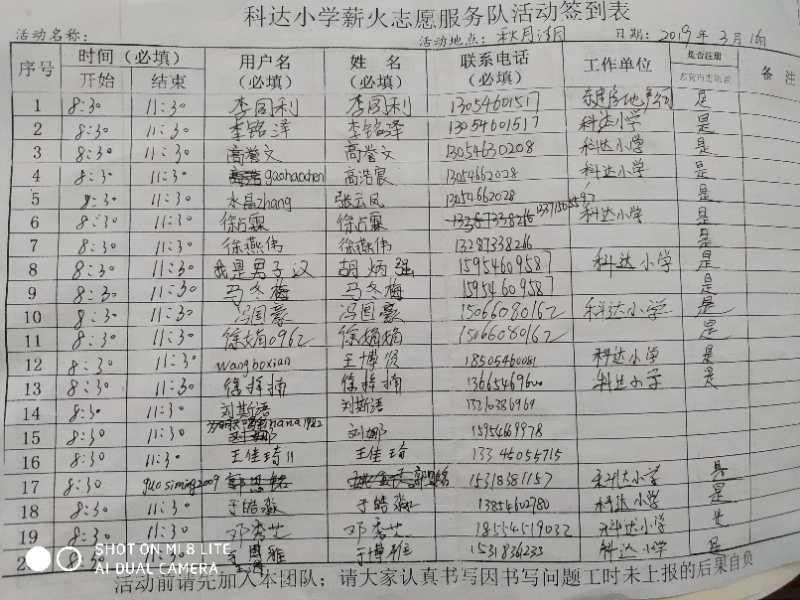 科达小学薪火志愿服务队活动签到表
活动名称: 活动地点: 秋月洋园 日期: 2019年3月16
序号 时间(必填) 用户名(必填) 姓名(必填) 联系电话(必填) 工作单位 是否注册 备注
开始 结束
1 8:30 11:30 李国利 李国利 13054601517 是
2 8:30 11:30 李铭泽 李铭泽 13054601517 科达小学 是
3 8:30 11:30 高誉文 高誉文 13054630208 科达小学 是
4 8:30 11:30 gaohaochen 高浩宸 13054662028 科达小学 是
5 8:30 11:30 水晶zhang 张云凤 13054662028 是
6 8:30 11:30 徐占霖 徐占霖 科达小学 是
7 8:30 11:30 徐燕伟 徐燕伟 13287338266 是
8 8:30 11:30 我是男子汉 胡炳强 15954609587 科达小学 是
9 8:30 11:30 马冬梅 马冬梅 15954609587 是
10 8:30 11:30 冯国豪 冯国豪 15066080162 科达小学 是
11 8:30 11:30 徐娟0962 徐娟娟 15066080162 是
12 8:30 11:30 wangboxian 王博贤 科达小学 是
13 8:30 11:30 科达小学 是
14 8:30 11:30 刘斯语 刘斯语
15 8:30 11:30 刘娜 15954669978
16 8:30 11:30 王佳琦11 王佳琦 13345054715
17 8:30 guosiming2009 15318381157 科达小学 是
18 8:30 11:30 于皓淼 于皓淼 13854602780 科达小学 是
19 8:30 11:30 邓秀芝 邓秀芝 18554519032 科达小学 是
11:30 1531836235 科达小学 是
SHOT ON MI 8 LITE
AI DUAL CAMERA
活动前请先加入本团队;请大家认真书写因书写问题工时未上报的后果自负